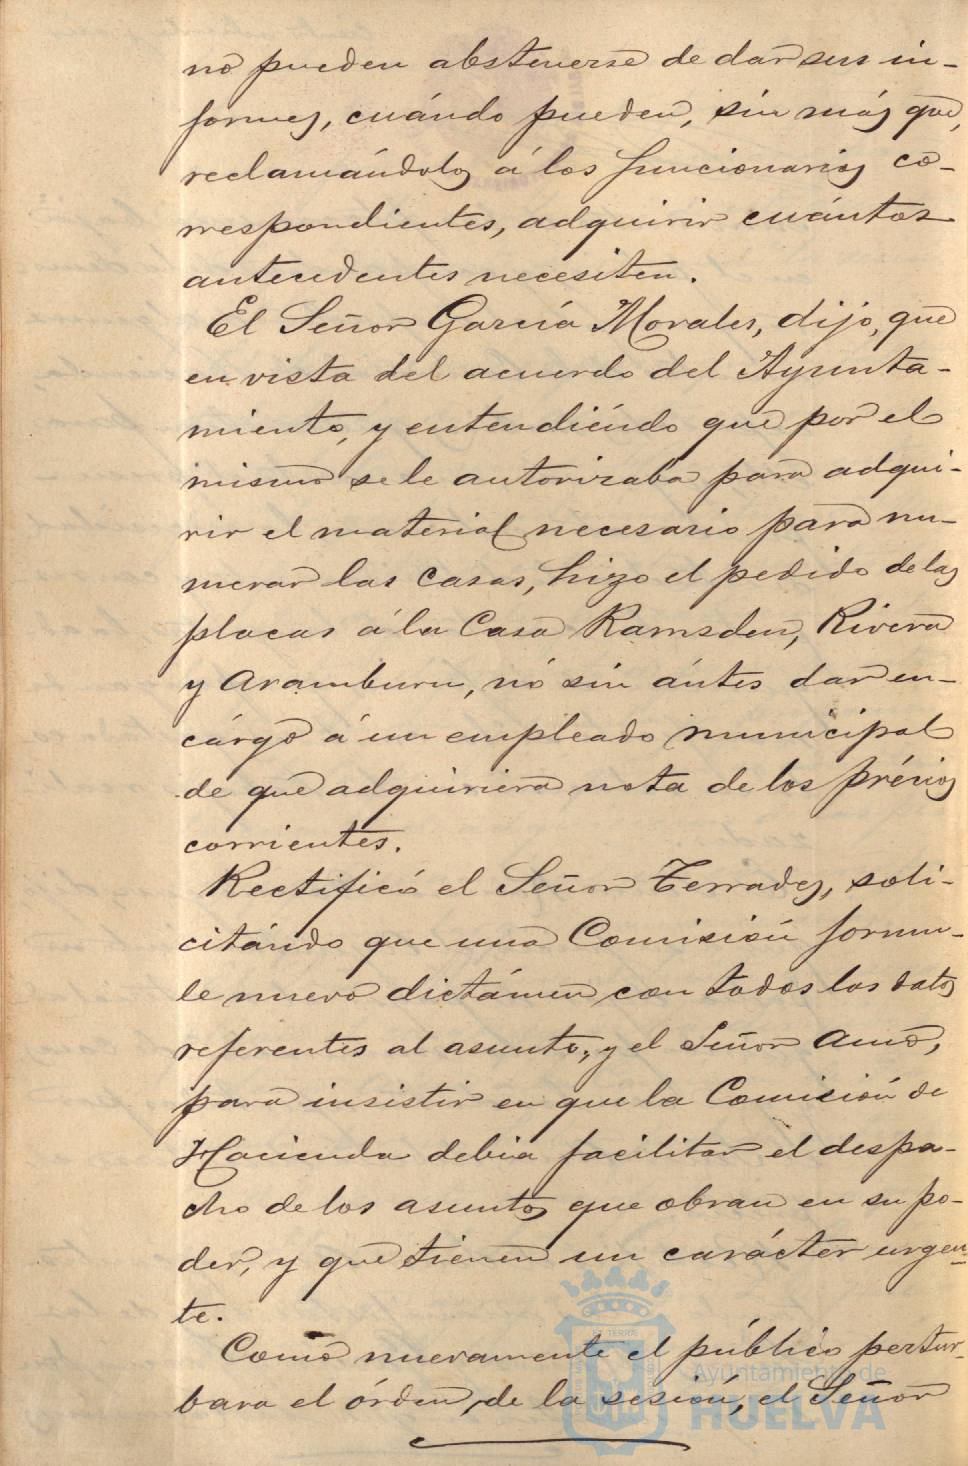 no pueden abstenerse de dar sus in-
formes, cuándo pueden, sin más que,
reclamándolos á los funcionarios co-
rrespondientes, adquirir cuántos
antecedentes necesiten.
El Señor García Morales, dijo, que
en vista del acuerdo del Ayunta-
miento, y entendiéndo que por el
mismo se le autorizaba para adqui-
rir el material necesario para nu-
merar las casas, hizo el pedido de las
placas á la Casa Ramsden, Rivera
y Aramburu, nó sin ántes dar en-
cárgo á un empleado municipal
de que adquiriera nota de los précios
corrientes.
Rectificó el Señor Terrades, soli-
citándo que una Comisión formu-
le nuevo dictámen con todos los datos
referentes al asunto; y el Señor Amo,
para insistir en que la Comisión de
Hacienda debia facilitar el despa-
cho de los asuntos que obran en su po-
der, y que tienen un carácter urgen-
te.
Como nuevamente el público pertur-
bara el órden, de la sesión, el Señor
Ayuntamiento de
HUELVA